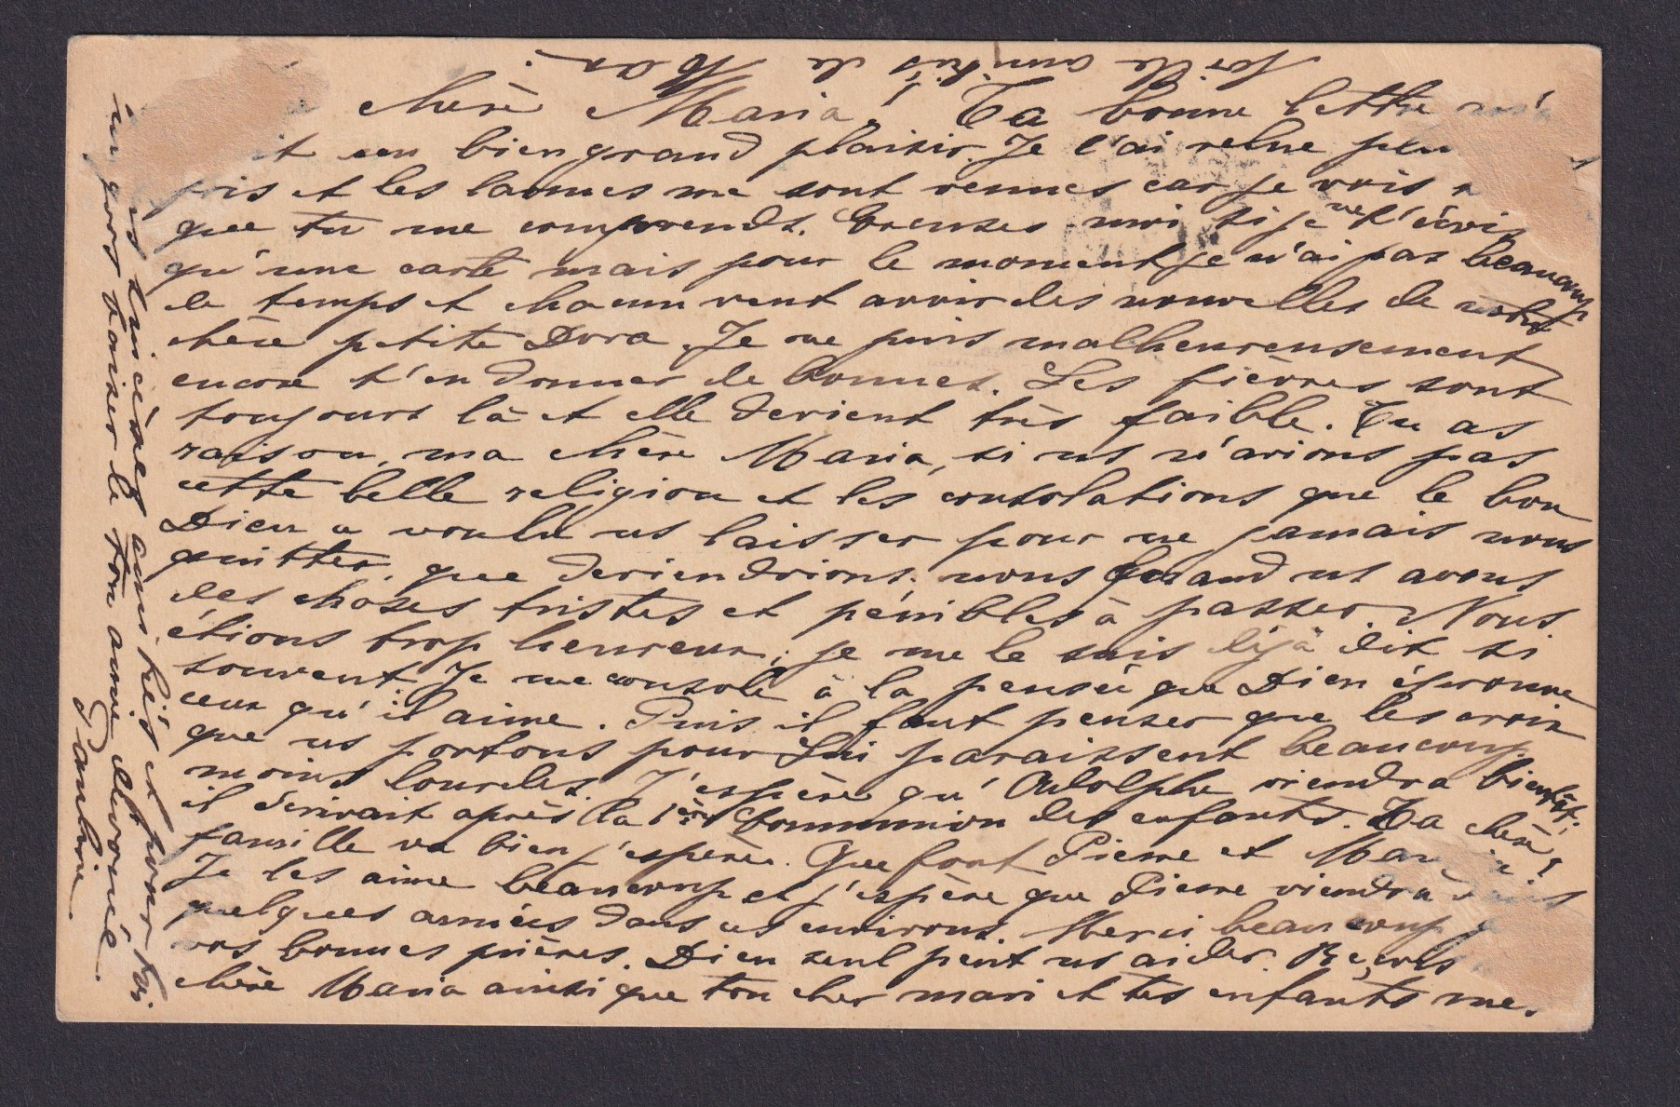 chère Maria! Ta bonne lettre m'a
fait un bien grand plaisir. Je l'ai relue
et les larmes me sont venues car je vois
que tu me comprends. Excuses moi si je ne t'écris
qu'une carte mais pour le moment je n'ai pas beaucoup
de temps et chacun veut avoir des nouvelles de notre
chère petite Dora. Je ne puis malheureusement
encore t'en donner de bonnes. Les fièvres sont
toujours là et elle devient très faible. Tu as
raison, ma chère Maria, si ns n'avions pas
cette belle religion et les consolations que le bon
Dieu a voulu ns laisser pour ne jamais nous
quitter, que deviendrions-nous quand ns avons
des choses tristes et pénibles à passer. Nous
étions trop heureux, je me le suis déjà dit si
souvent. Je me console à la pensée que Dieu éprouve
ceux qu'il aime. Puis il faut penser que les croix
que ns portons pour Lui paraissent beaucoup
moins lourdes. J'espère qu'Adolphe viendra bientôt;
il écrivait après la 1ère Communion des enfants. Ta chère
famille va bien j'espère. Que font Pierre et
Je les aime beaucoup et j'espère que Pierre viendra
quelques années dans ns environs. Merci beaucoup
vos bonnes prières. Dieu seul peut ns aider. Reçois
chère Maria ainsi que ton cher mari et tes enfants mes
sincères amitiés et pour toi
un gros baiser de ton amie dévouée
Pauline.
mille amitiés de Max.